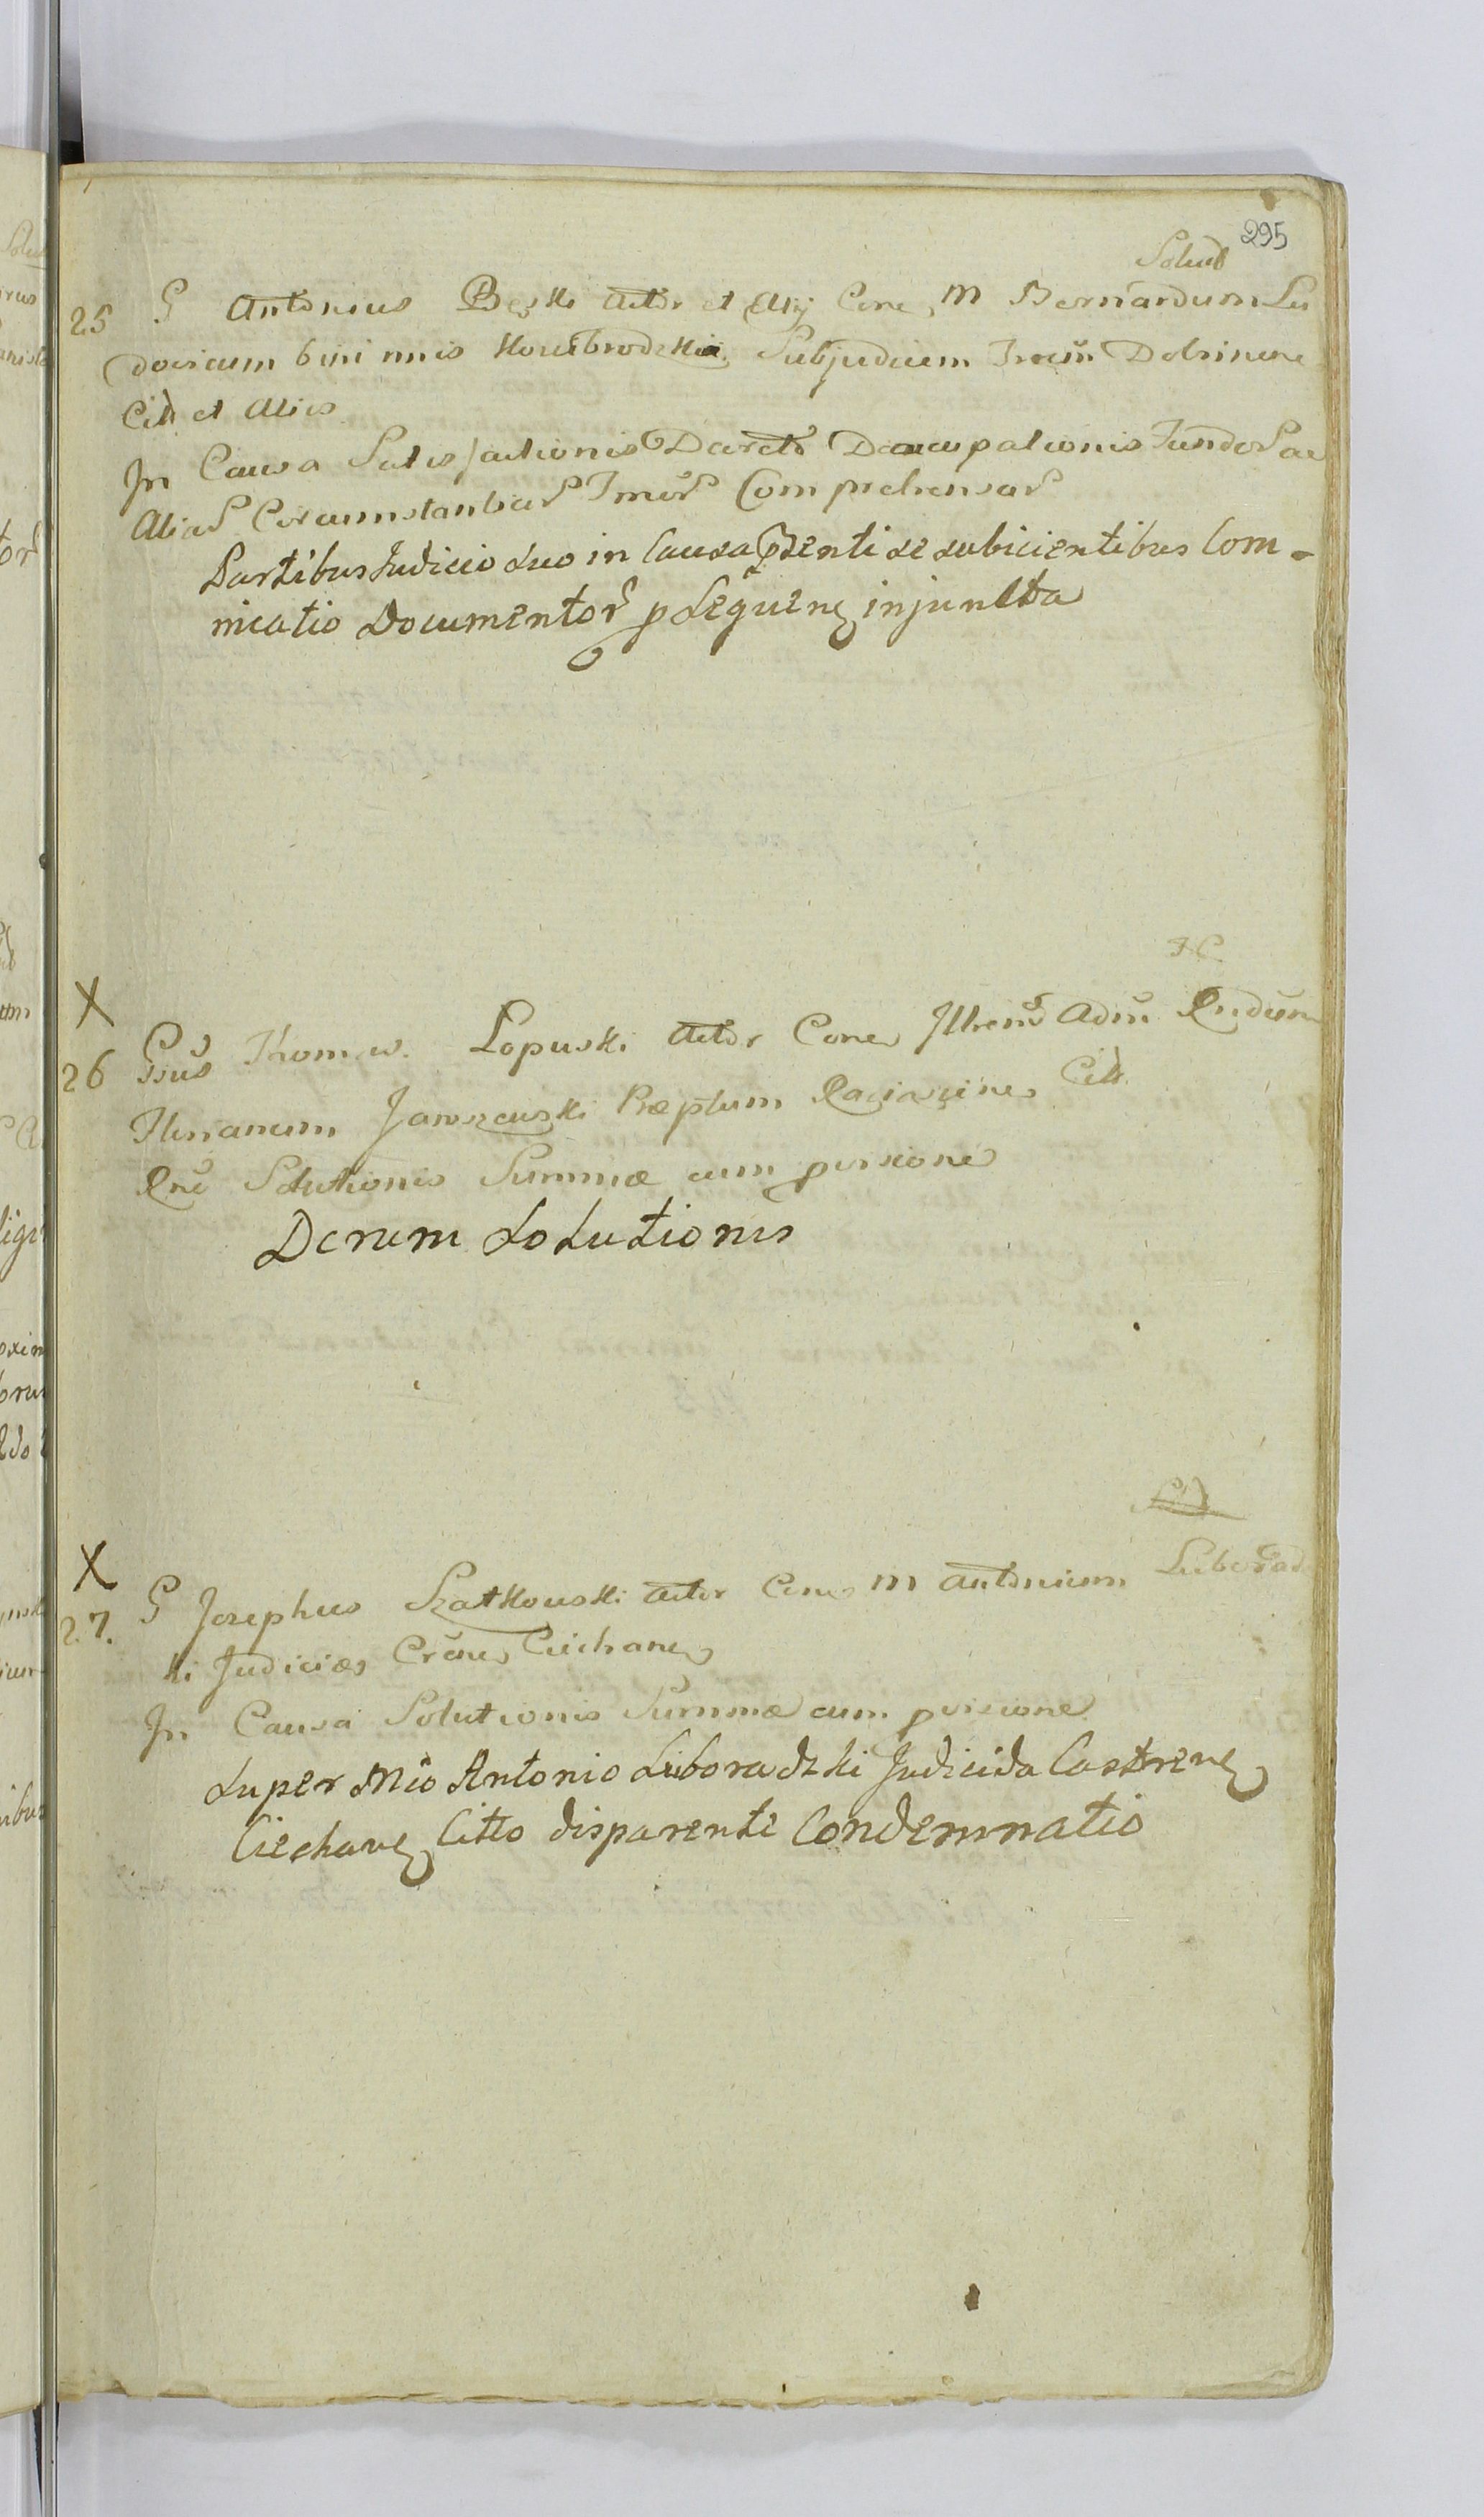 295
Solut
25 G Antonius Bęski Actor et Alij Cone M Bernardum Lu
dovicum bini nnis Koziebrodzkie Subjudicem Trrum Dobrinens
Citt et Alios
In Causa Satisfactionis Decreto Deoccupationis Fundor ac
Aliar Circumstantiar Inius Comprehensar
Partibus Judicio suo in Causa Psenti se subicientibus Com-
nicatio Documentor p Sequenz injuncta
X
26 Gsus Thomas Lopuski Actor Cone Illrem Adm Rndum
Florianum Jaroszewski Præptum Raciązinen Citt
Rne Solutionis Summæ cum provisione
Dcrum Solutionis
X
27. G Josephus Szatkowski Actor Cone M Antonium Luboradz
ki Judicidæ Crens Ciechanen
In Causa Solutionis Summæ cum provisione
Super Mco Antonio Luboradzki Judicida Castrens
Ciechanen Citto disparente Condemnatio